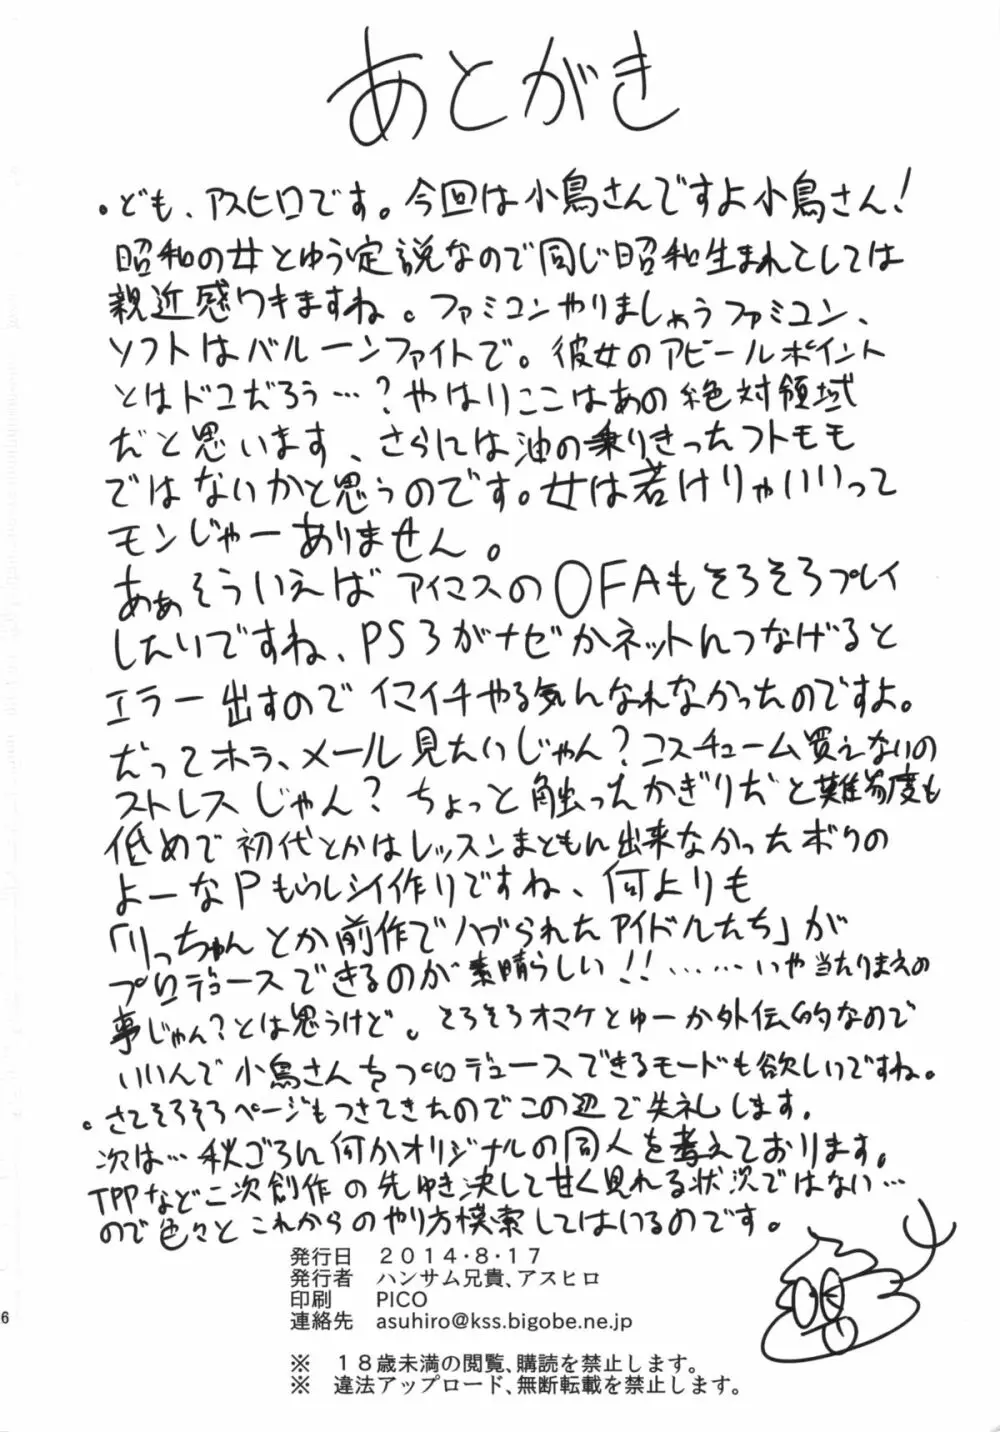 あとがき
・ども、アスヒロです。今回は小鳥さんですよ小鳥さん!
昭和の女とゆう定説なので同じ昭和生まれとしては
親近感ワキますね。ファミコンやりましょうファミコン、
ソフトはバルーンファイトで。彼女のアピールポイント
とはドコだろう…?やはりここはあの絶対領域
だと思います、さらには油の乗りきったフトモモ
ではないかと思うのです。女は若けりゃいいって
モンじゃーありません。
あぁそういえばアイマスのOFAもそろそろプレイ
したいですね、PS3がナゼかネットにつなげると
エラー出すのでイマイチやる気になれなかったのですよ。
だってホラ、メール見たいじゃん?コスチューム買えないの
ストレスじゃん?ちょっと触ったかぎりだと難易度も
低めで初代とかはレッスンまともに出来なかったボクの
よーなPもらしい作りですね、何よりも
「りっちゃんとか前作でハブられたアイドルたち」が
プロデュースできるのが素晴らしい!!……いや当たりまえの
事じゃん?とは思うけど。そろそろオマケとゅーか外伝的なので
いいんで小鳥さんをプロデュースできるモードも欲しいですね。
・さてそろそろページもつきてきたのでこの辺で失礼します。
次は…秋ごろに何かオリジナルの同人を考えております。
TPPなど二次創作の先ゆき決して甘く見れる状況ではない…
ので色々とこれからのやり方模索してはいるのです。
発行日 2014・8・17
発行者 ハンサム兄貴、アスヒロ
印刷 PICO
連絡先 asuhiro@kss.bigobe.ne.jp
※ 18歳未満の閲覧、購読を禁止します。
※ 違法アップロード、無断転載を禁止します。
6